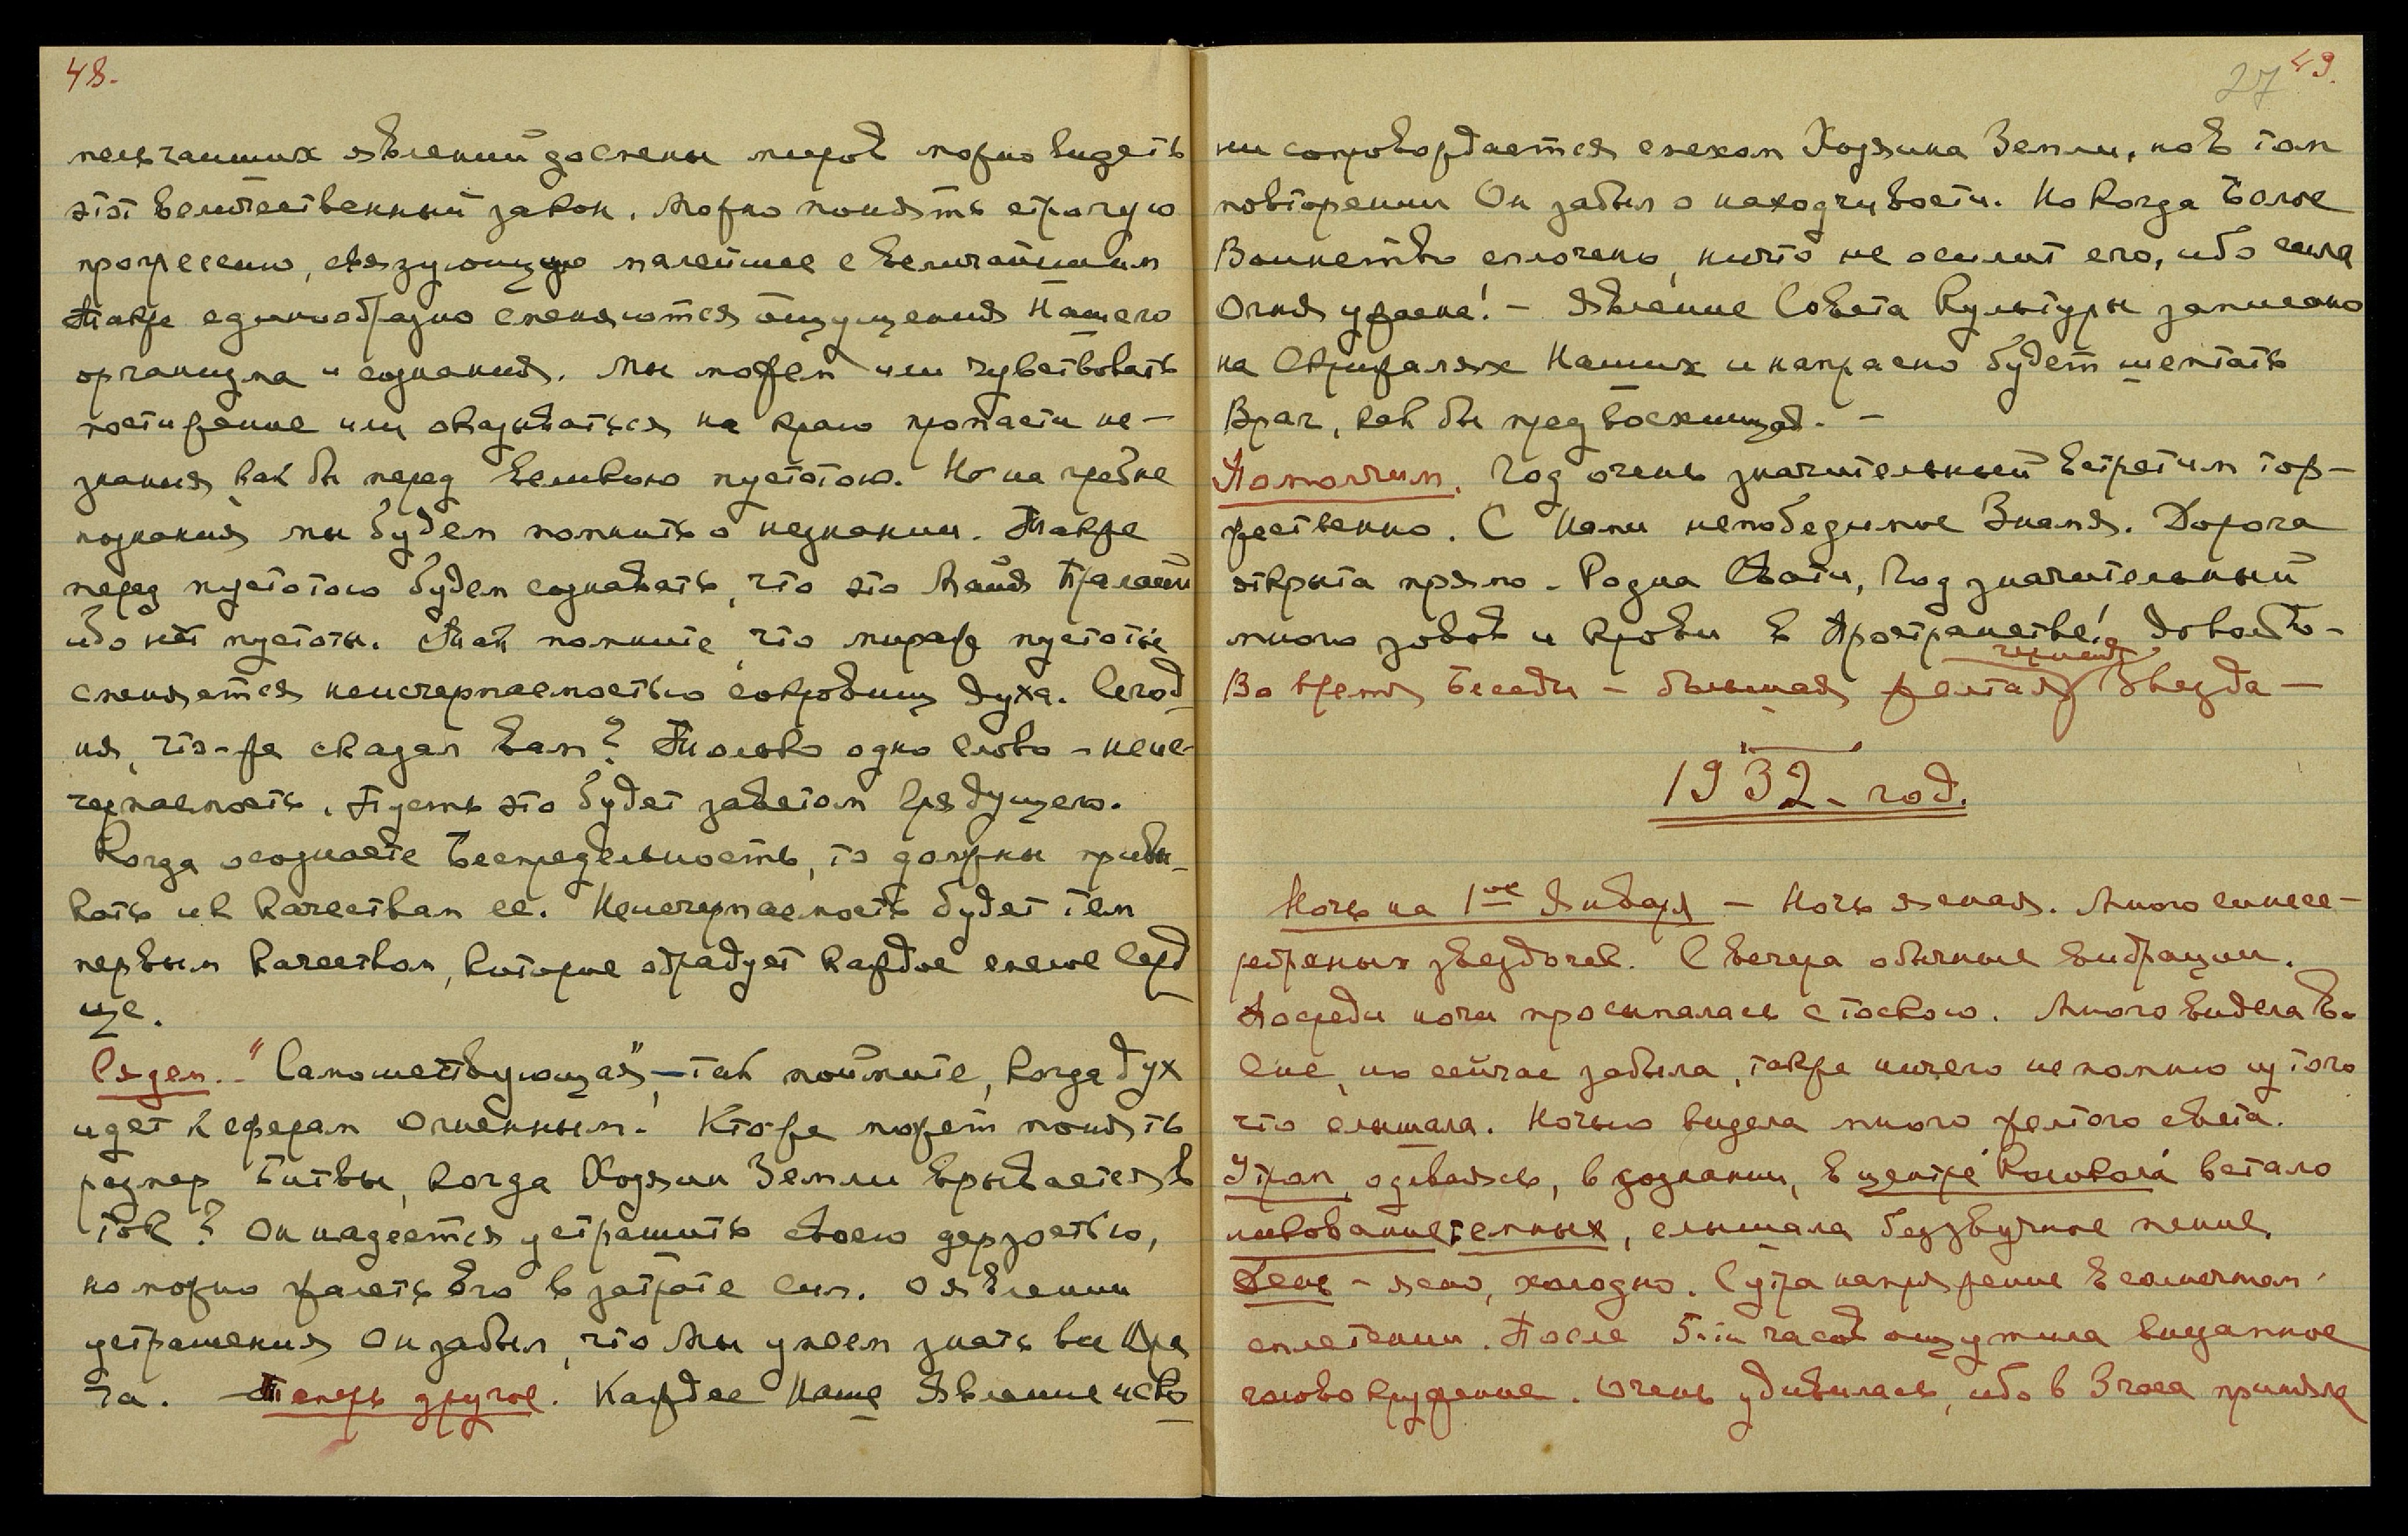 48.
мельчайших явлений до смены миров можно видеть
этот величественный закон. Можно понять строгую
прогрессию, связующую малейшее с величайшим
Также единообразно сменяются ощущения Нашего
организма и сознания. Мы можем или чувствовать
постижение или оказываться на краю пропасти не-
знания, как бы перед великою пустотою. Но на гребне
познания мы будем помнить о незнании. Также
перед пустотою будем сознавать, что это Майя Пралайи
ибо нет пустоты. Так помните, что мираж пустоты
сменяется неисчерпаемостью сокровищ духа. Сегод-
ня, что-же сказал вам? Только одно слово - неис-
черпаемость. Пусть это будет заветом Грядущего.
Когда осознаете Беспредельность, то должны привы-
кать и к качествам ее. Неисчерпаемость будет тем
первым качеством, которое обрадует каждое смелое серд-
це.
Сядем. - "Самошествующая", - так поймите, когда дух
идет к сферам Огненным! Кто-же может понять
размер Битвы, когда Хозяин Земли врывается в
ток? Он надеется устрашить своею дерзостью,
но можно жалеть его в затрате сил. О явлении
устрашения Он забыл, что Мы умеем знать вы Вра
га. - Теперь другое. Каждое Наше Явление иско
27 49.
ни сопровождается смехом Хозяина Земли, но в том
повторении Он забыл о находчивости. Но когда Белое
Воинство сплочено, ничто не осилит его, ибо сила
Огня ужасна! - Явление Совета Культуры записано
на Скрижалях Наших и напрасно будет шептать
Враг, как бы пред восхищая. -
Помолчим. Год очень значительный встретим тор-
жественно. С Нами непобедимое Знамя. Дорога
открыта прямо - Родна Свати, Год значительный
много зовов и крови в Пространстве! Довольно -
черная
Во время Беседы - большая желтая Звезда -
1932 - год.
Ночь на 1ое Января - Ночь ясная. Много синесе-
ребреных звездочек. С вечера обычные вибрации.
Посреди ночи просыпалась с тоскою. Много видела во
сне, но сейчас забыла, также ничего не помню из того
что слышала. Ночью видела много желтого света.
Утром, одеваясь, в сознании, в центре Колокола встало
ликование темных, слышала беззвучное пение.
День - ясно, холодно. С утра напряжение в солнечном
сплетении. После 5-ти часов ощутила внезапное
головокружение. Очень удивилась, ибо в 3 часа приняла